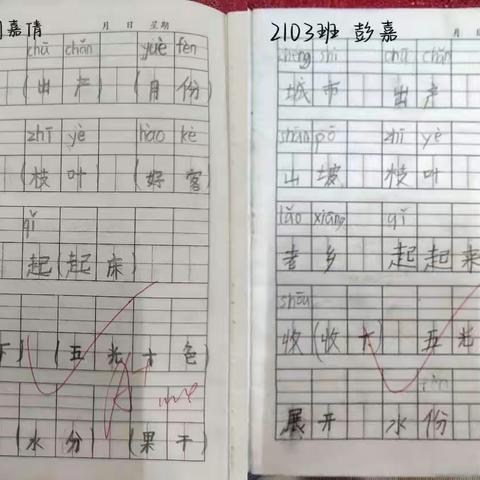 嘉倩
月 日 星期
chū chǎn yuè fèn
(出产) (月份)
zhī yè hào kè
(枝叶) (好客)
qǐ
起(起床)
(五光十色)
(水分) (果干)
2103班 彭嘉
月 日
chéng shì chū chǎn
城市 出产
shān pō zhī yè
山坡 枝叶
lǎo xiāng qǐ
老乡 起起来
shōu
收(收 五光
展开 水份